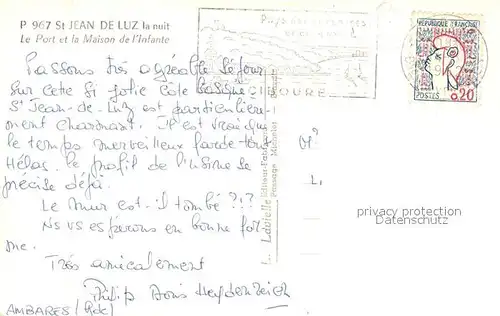 P 967 St JEAN DE LUZ la nuit
Le Port et la Maison de l'Infante
Passons très agréable séjour
sur cette si jolie côte basque
St Jean-de-Luz est particulière-
ment charmant. Il est vrai que
le temps merveilleux farde tout
Hélas le profil de l'usine se
précise déjà.
Le mur est-il tombé ?!?
Ns vs espérons en bonne for-
me.
Très amicalement
Philip Doris Heydenreich
AMBARES/(Gde)
CIBOURE
Labielle Editeur-Fabricant
Passage Michelet
REPUBLIQUE FRANÇAISE
POSTES 0,20
privacy protection
watermark